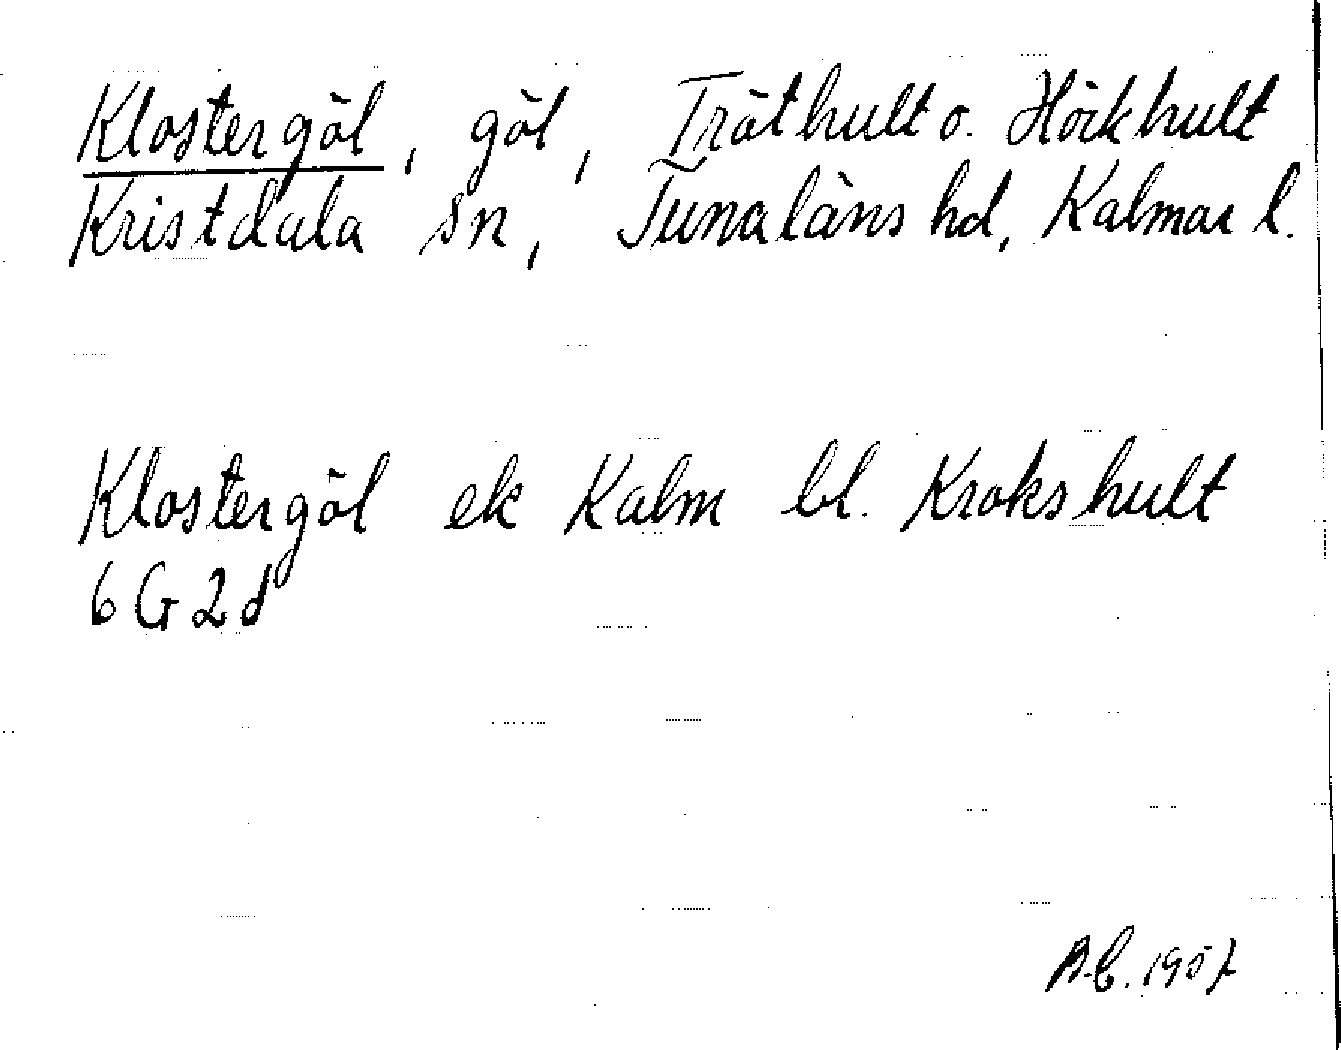 Klostergöl, göl, Tröthult o. Hökhult
Kristdala sn, Tunaläns hd, Kalmar l.
Klostergöl ek Kalm bl. Krokshult
6G2d
A.C. 1957